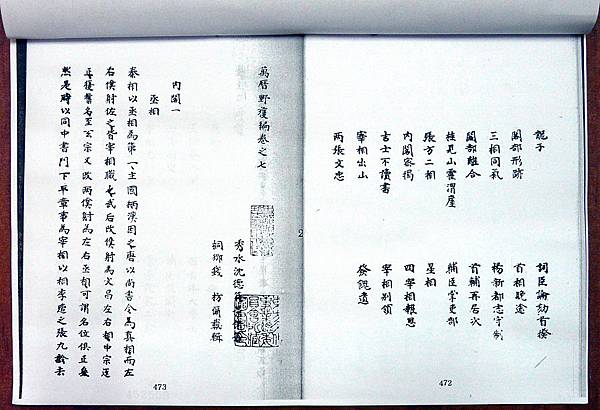 子 詞臣論劾首揆
閣部形跡 首相晚途
三相同氣 楊新都志守制
閣部離合 首輔再居次
桂見山霍渭厓 輔臣掌吏部
張方二相 星相
內閣密揭 四宰相報恩
吉士不讀書 宰相別領
宰相出山 發餽遺
兩張文忠
472
2
萬曆野獲編卷之七
秀水沈德
桐鄉錢 枋爾載輯
內閣一
丞相
秦相以丞相為第一主國柄漢因之唐以尚書令為真相而左
右僕射佐之皆宰相職也武后改僕射為文昌左右相中宗還
正復舊名至玄宗又改兩僕射為左右丞相可謂名位俱正矣
然是時以同中書門下平章事為宰相以相李適之張九齡去
473